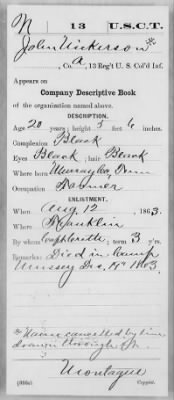 N | 13 | U.S.C.T.
John Nickerson *
, Co. A, 13 Reg't U. S. Col'd Inf.
Appears on
Company Descriptive Book
of the organization named above.
DESCRIPTION.
Age 20 years; height 5 feet 6 inches.
Complexion Black
Eyes Black; hair Black
Where born Tenn
Occupation Farmer
ENLISTMENT.
When Aug 12, 1863.
Where Franklin
By whom; term 3 y'rs.
Remarks: Died in Camp
1863
* Name cancelled by line
drawn through it.
Montague
Copyist.